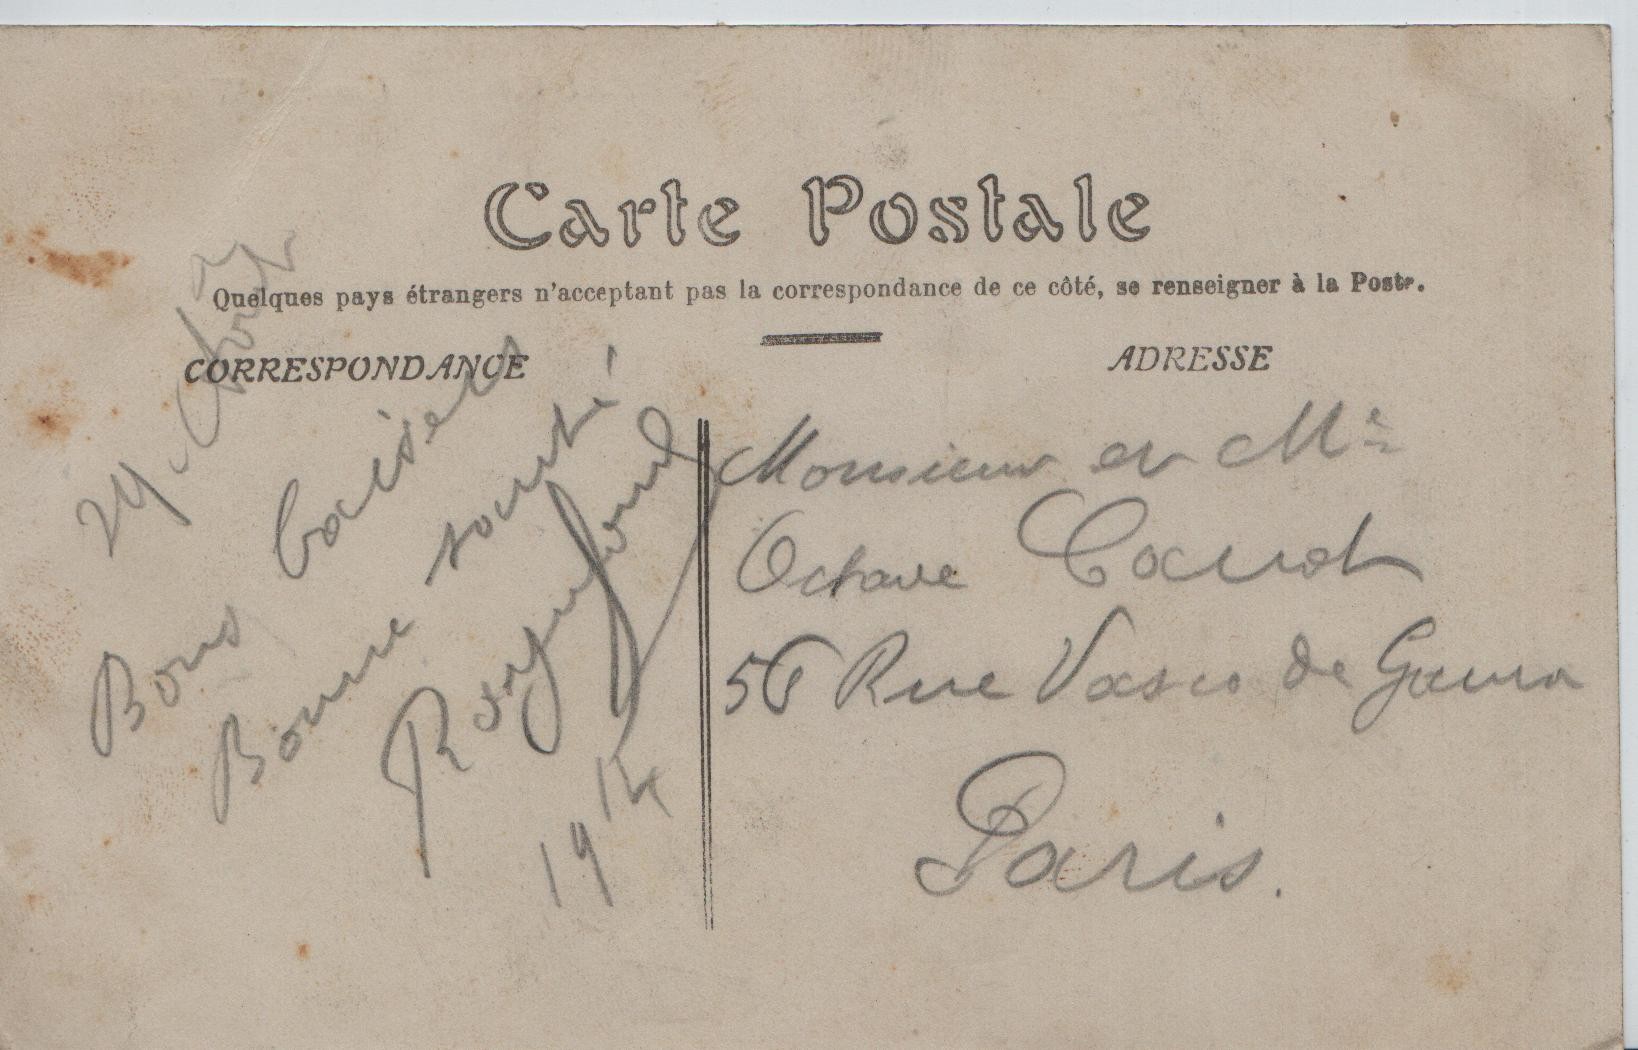 Carte Postale
Quelques pays étrangers n'acceptant pas la correspondance de ce côté, se renseigner à la Poste.
CORRESPONDANCE
ADRESSE
29
Bons baisers
Bonne santé
Raymond
1914
Monsieur et Mme
Octave
56 Rue Vasco de Gama
Paris.